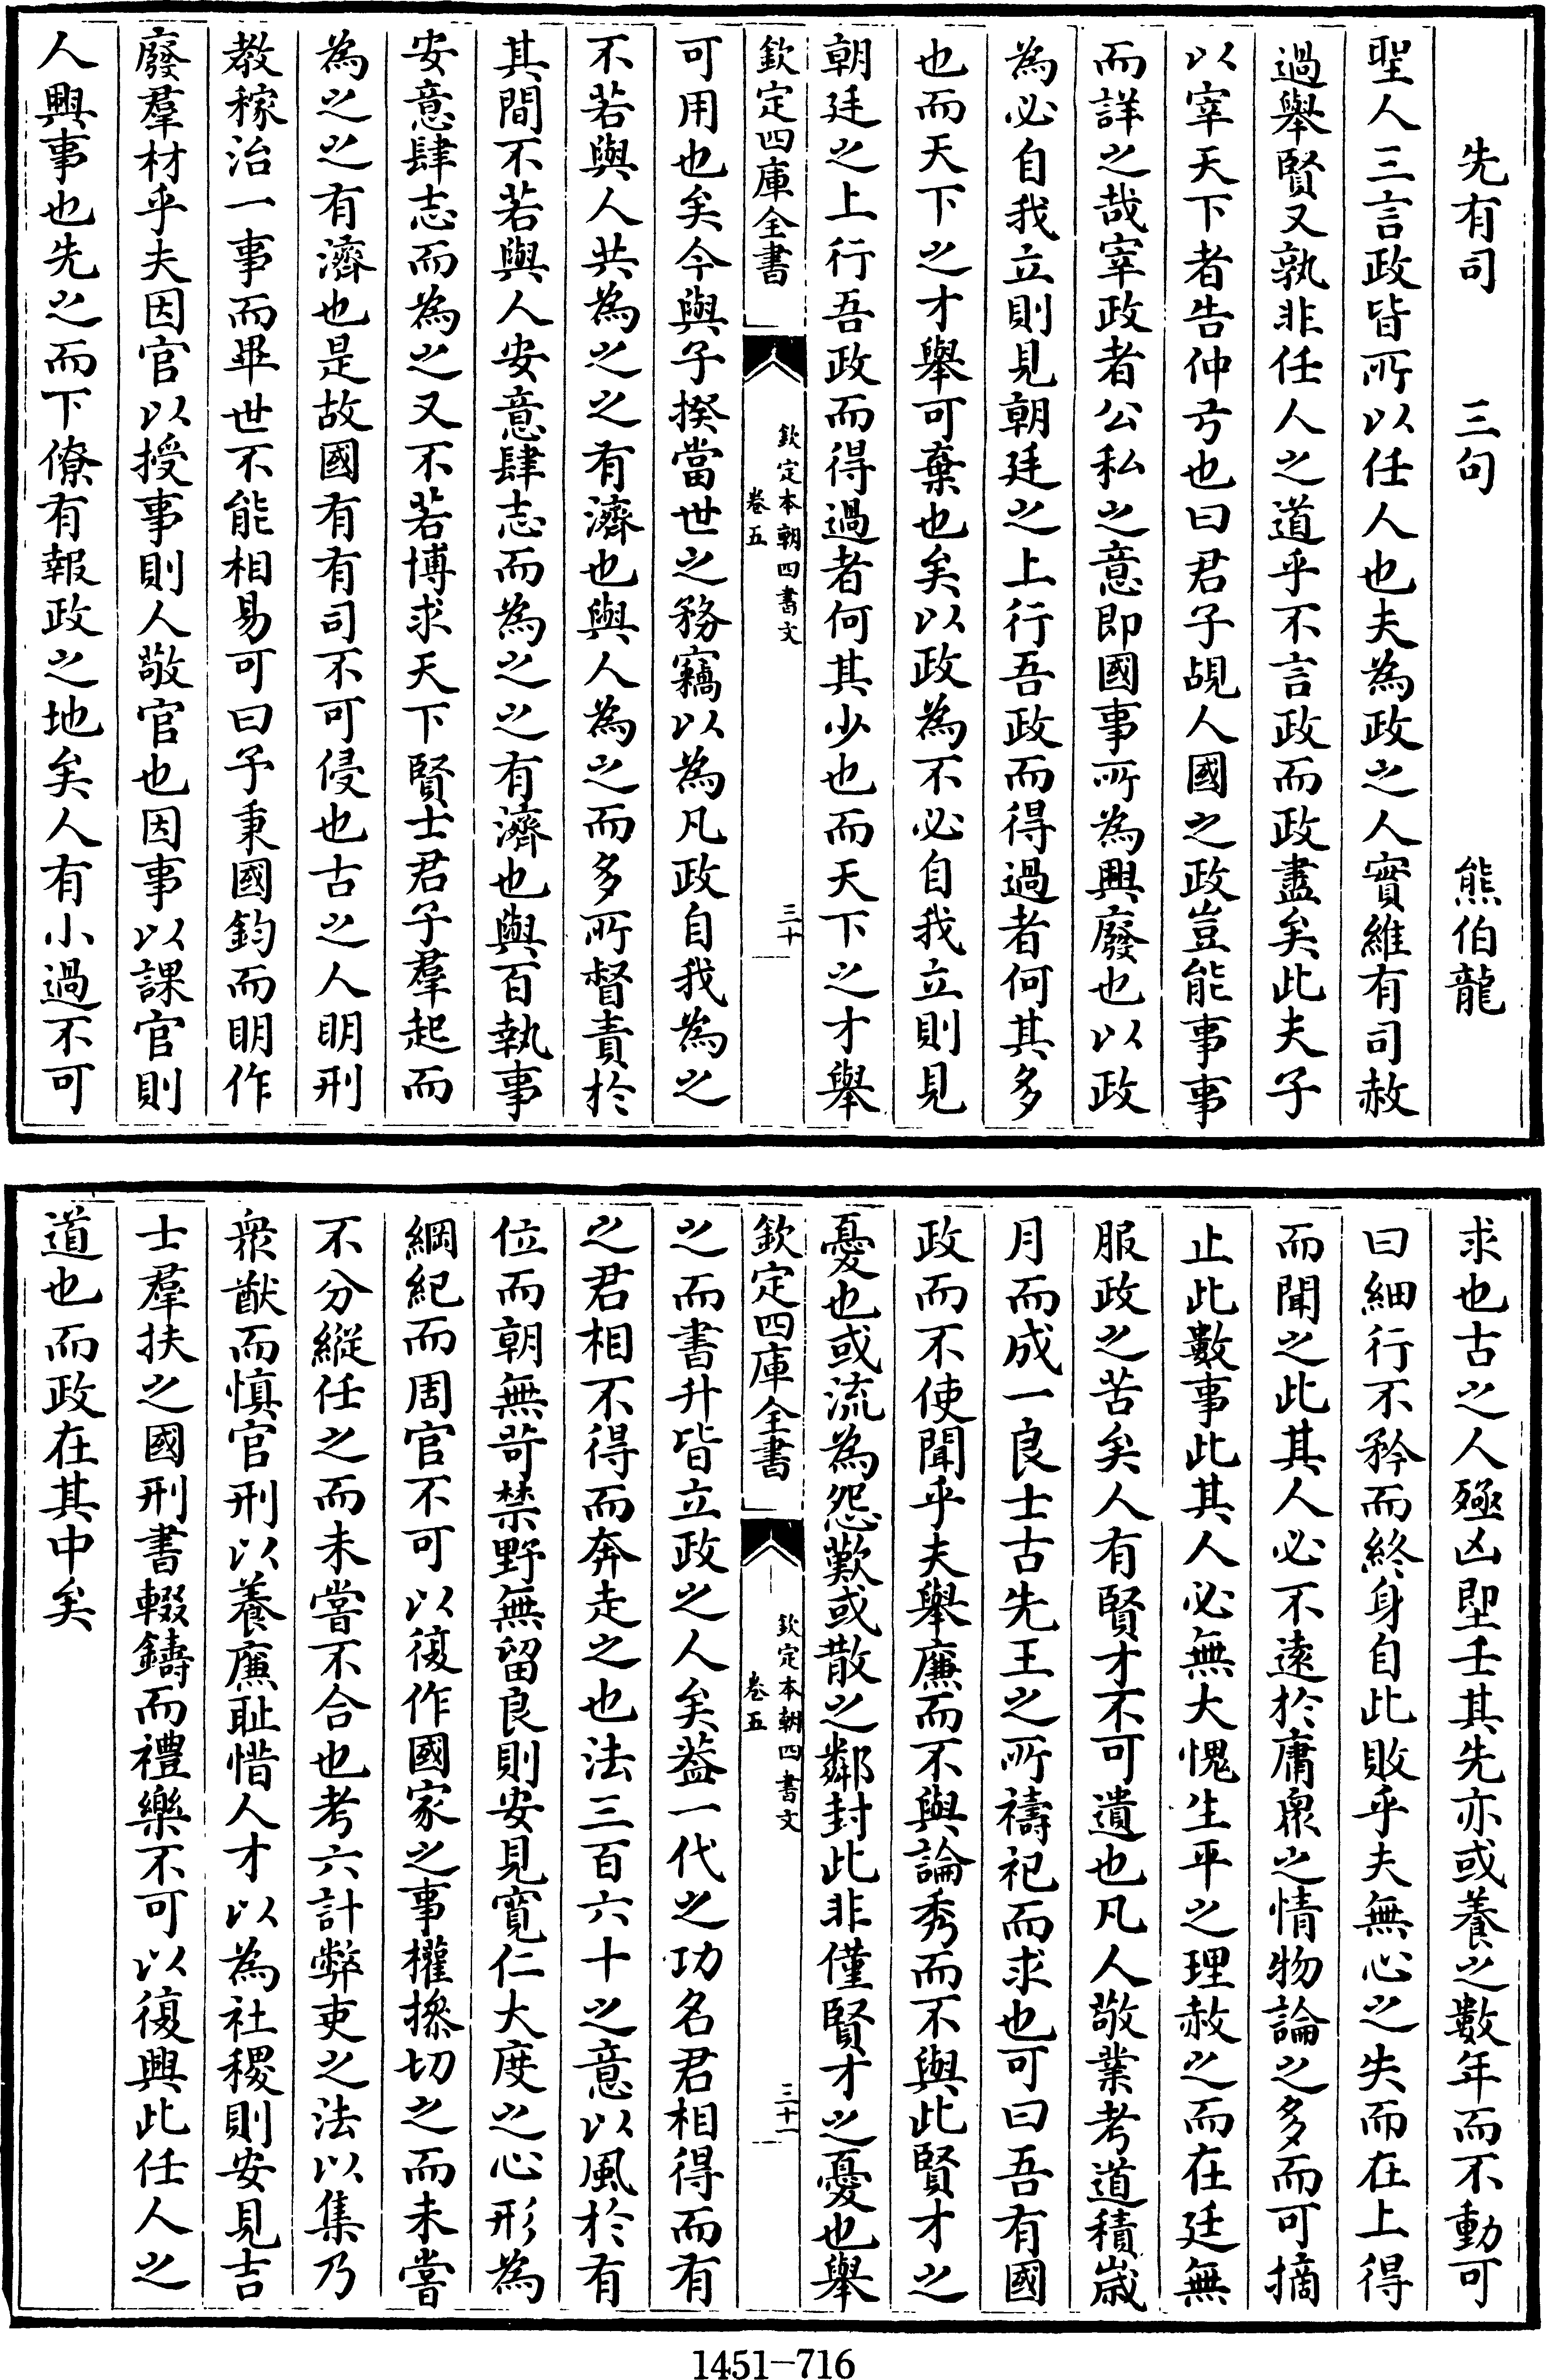 先有司　三句　熊伯龍
聖人三言政皆所以任人也夫為政之人實維有司赦
過舉賢又孰非任人之道乎不言政而政盡矣此夫子
以宰天下者告仲弓也曰君子覘人國之政豈能事事
而詳之哉宰政者公私之意即國事所為興廢也以政
為必自我立則見朝廷之上行吾政而得過者何其多
也而天下之才舉可棄也矣以政為不必自我立則見
朝廷之上行吾政而得過者何其少也而天下之才舉
欽定四庫全書
欽定本朝四書文
卷五
三十
可用也矣今與子揆當世之務竊以為凡政自我為之
不若與人共為之之有濟也與人為之而多所督責於
其間不若與人安意肆志而為之之有濟也與百執事
安意肆志而為之又不若博求天下賢士君子羣起而
為之之有濟也是故國有有司不可侵也古之人明刑
教稼治一事而畢世不能相易可曰予秉國鈞而明作
廢羣材乎夫因官以授事則人敬官也因事以課官則
人興事也先之而下僚有報政之地矣人有小過不可
求也古之人殛凶堲壬其先亦或養之數年而不動可
曰細行不矜而終身自此敗乎夫無心之失而在上得
而聞之此其人必不遠於庸衆之情物論之多而可摘
止此數事此其人必無大愧生平之理赦之而在廷無
服政之苦矣人有賢才不可遺也凡人敬業考道積歲
月而成一良士古先王之所禱祀而求也可曰吾有國
政而不使聞乎夫舉廉而不與論秀而不與此賢才之
憂也或流為怨歎或散之鄰封此非僅賢才之憂也舉
欽定四庫全書
欽定本朝四書文
卷五
三十一
之而書升皆立政之人矣葢一代之功名君相得而有
之君相不得而奔走之也法三百六十之意以風於有
位而朝無苛禁野無留良則安見寬仁大度之心形為
綱紀而周官不可以復作國家之事權操切之而未嘗
不分縱任之而未嘗不合也考六計弊吏之法以集乃
衆猷而慎官刑以養廉耻惜人才以為社稷則安見吉
士羣扶之國刑書輟鑄而禮樂不可以復興此任人之
道也而政在其中矣
1451-716